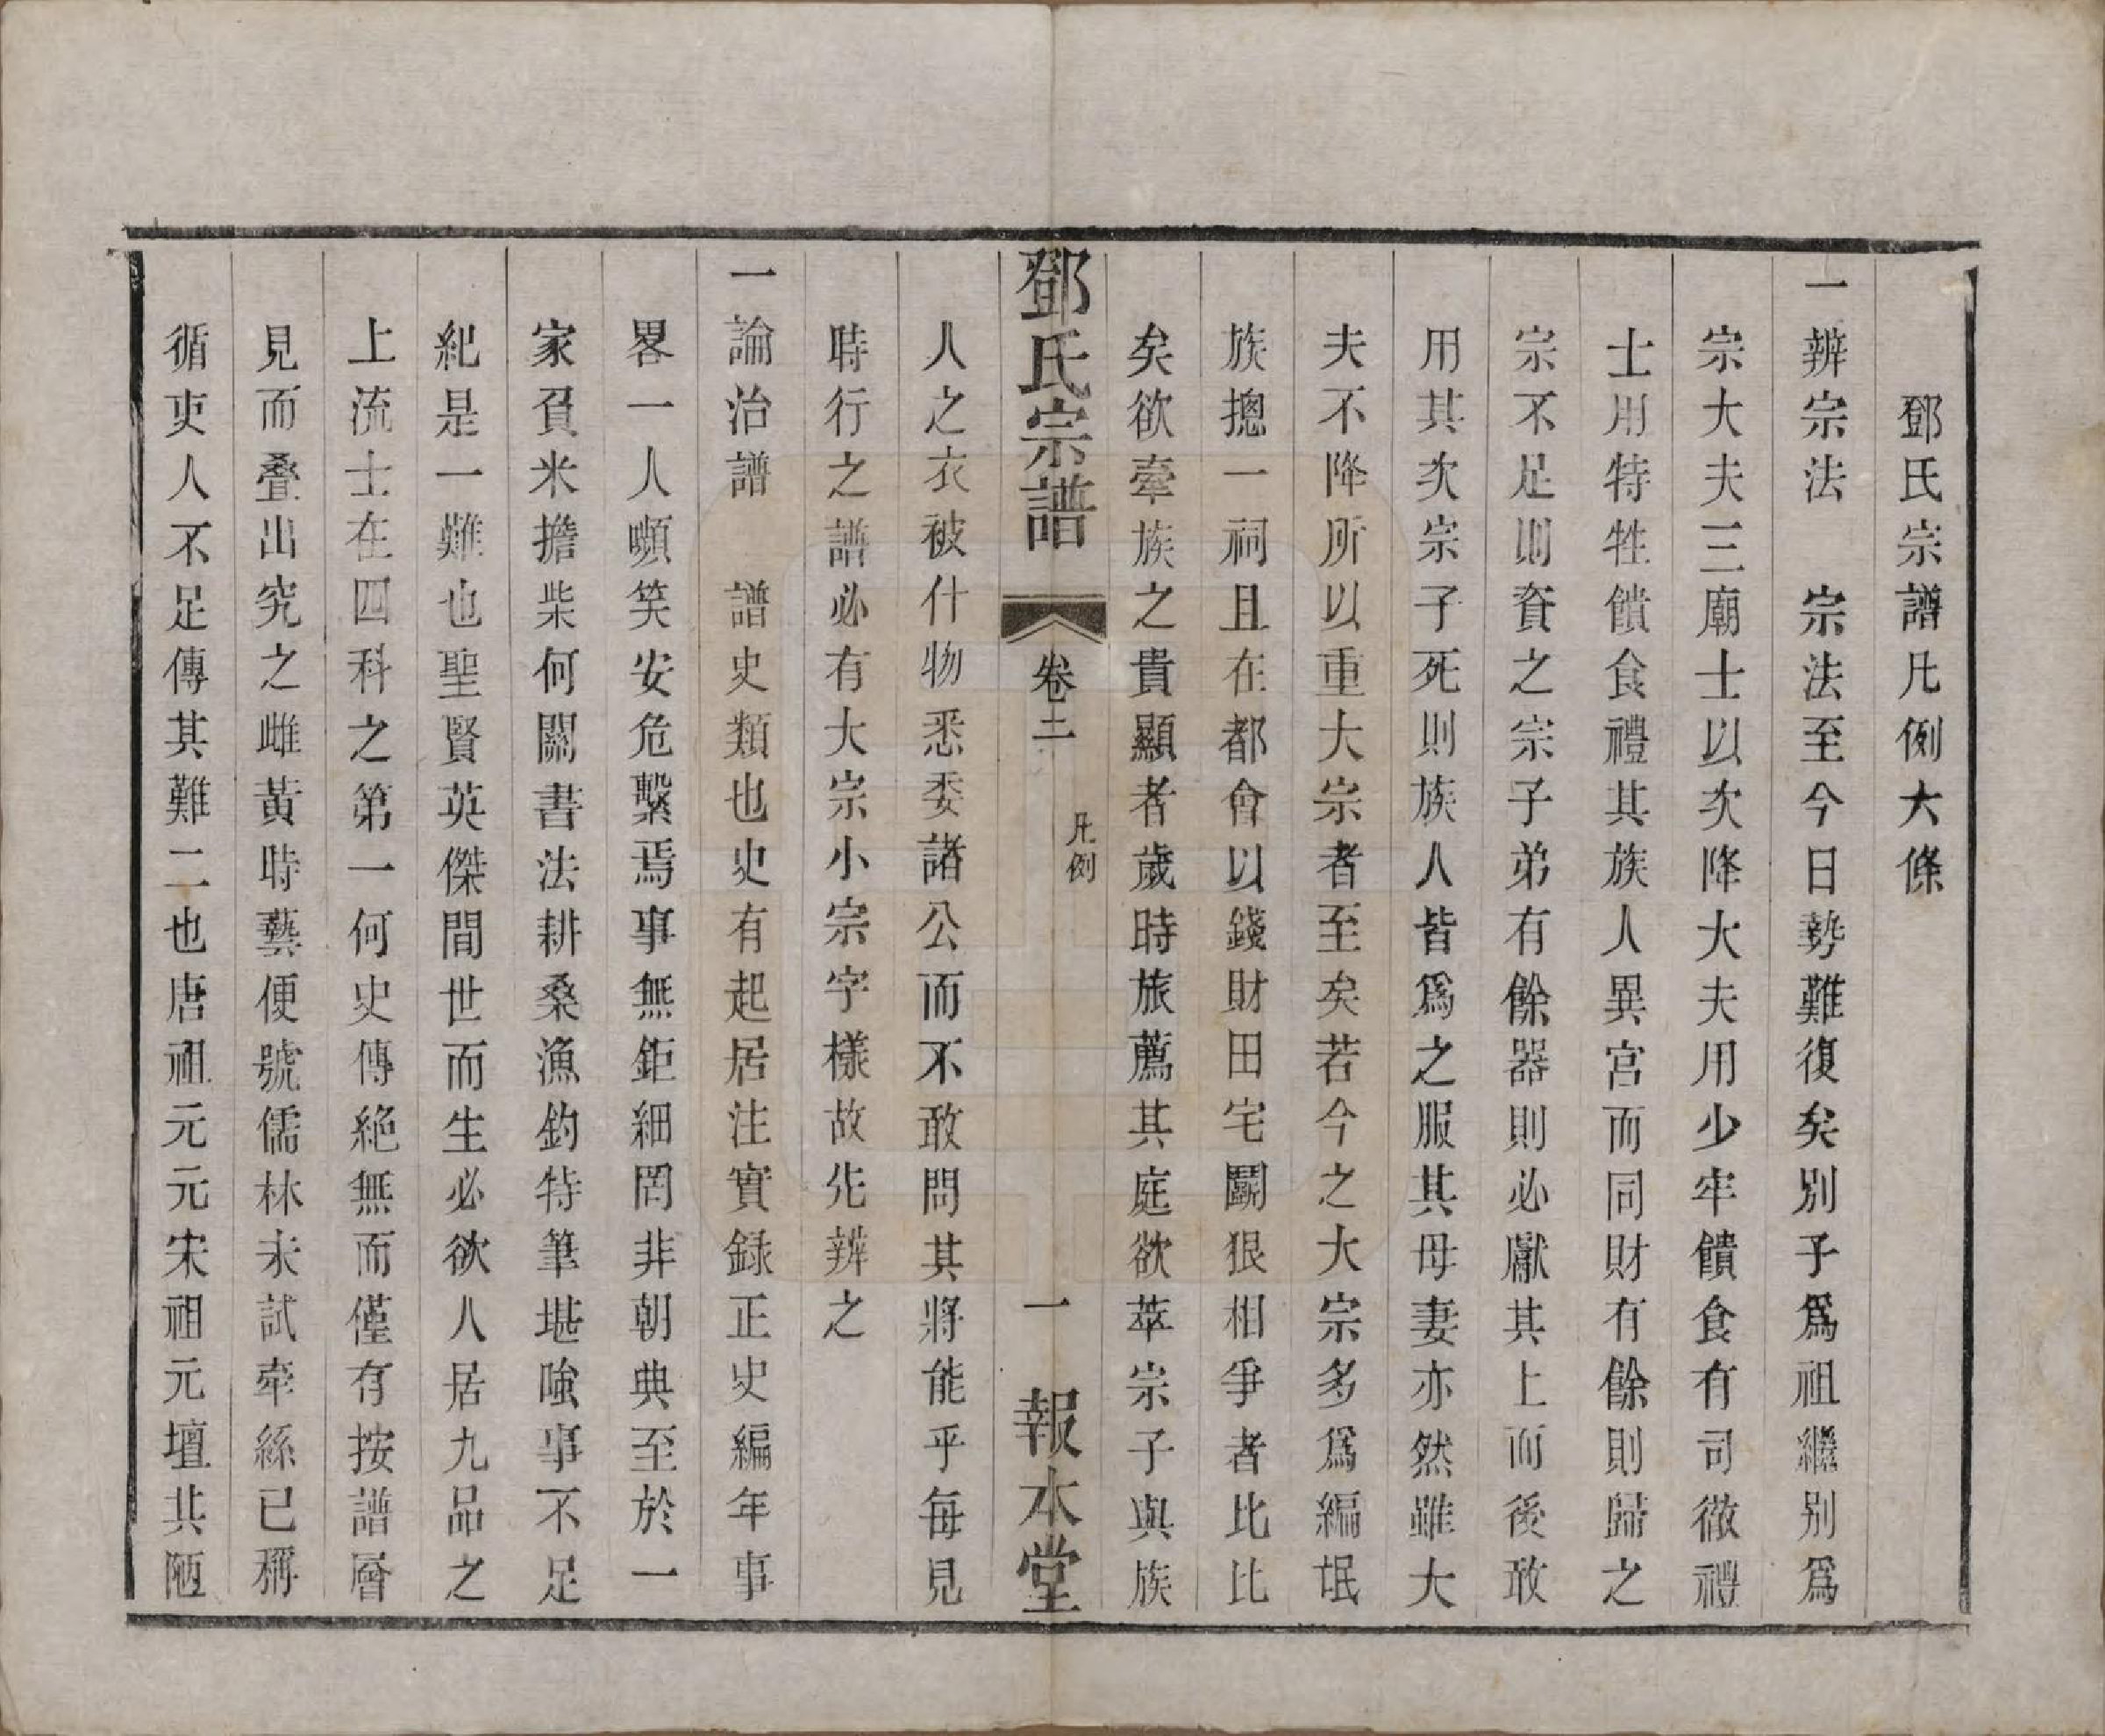 鄧氏宗譜凡例大條
一辨宗法　宗法至今日勢難復矣別子爲祖繼别爲
宗大夫三廟士以次降大夫用少牢饋食有司徹禮
士用特牲饋食禮其族人異宮而同財有餘則歸之
宗不足則資之宗子弟有餘器則必獻其上而後敢
用其次宗子死則族人皆爲之服其母妻亦然雖大
夫不降所以重大宗者至矣若今之大宗多爲編氓
族摠一祠且在都會以錢財田宅鬭狠相爭者比比
矣欲牽族之貴顯者歲時旅薦其庭欲萃宗子與族
鄧氏宗譜　卷二　凡例　一　報本堂
人之衣被什物悉委諸公而不敢問其將能乎每見
時行之譜必有大宗小宗字樣故先辨之
一論治譜　譜史類也史有起居注實録正史編年事
畧一人嚬笑安危繫焉事無鉅細罔非朝典至於一
家負米擔柴何關書法耕桑漁釣特筆堪嗤事不足
紀是一難也聖賢英傑間世而生必欲人居九品之
上流士在四科之第一何史傳絶無而僅有按譜層
見而疊出究之雌黃時藝便號儒林未試牽絲已稱
循吏人不足傳其難二也唐祖元元宋祖元壇其陋